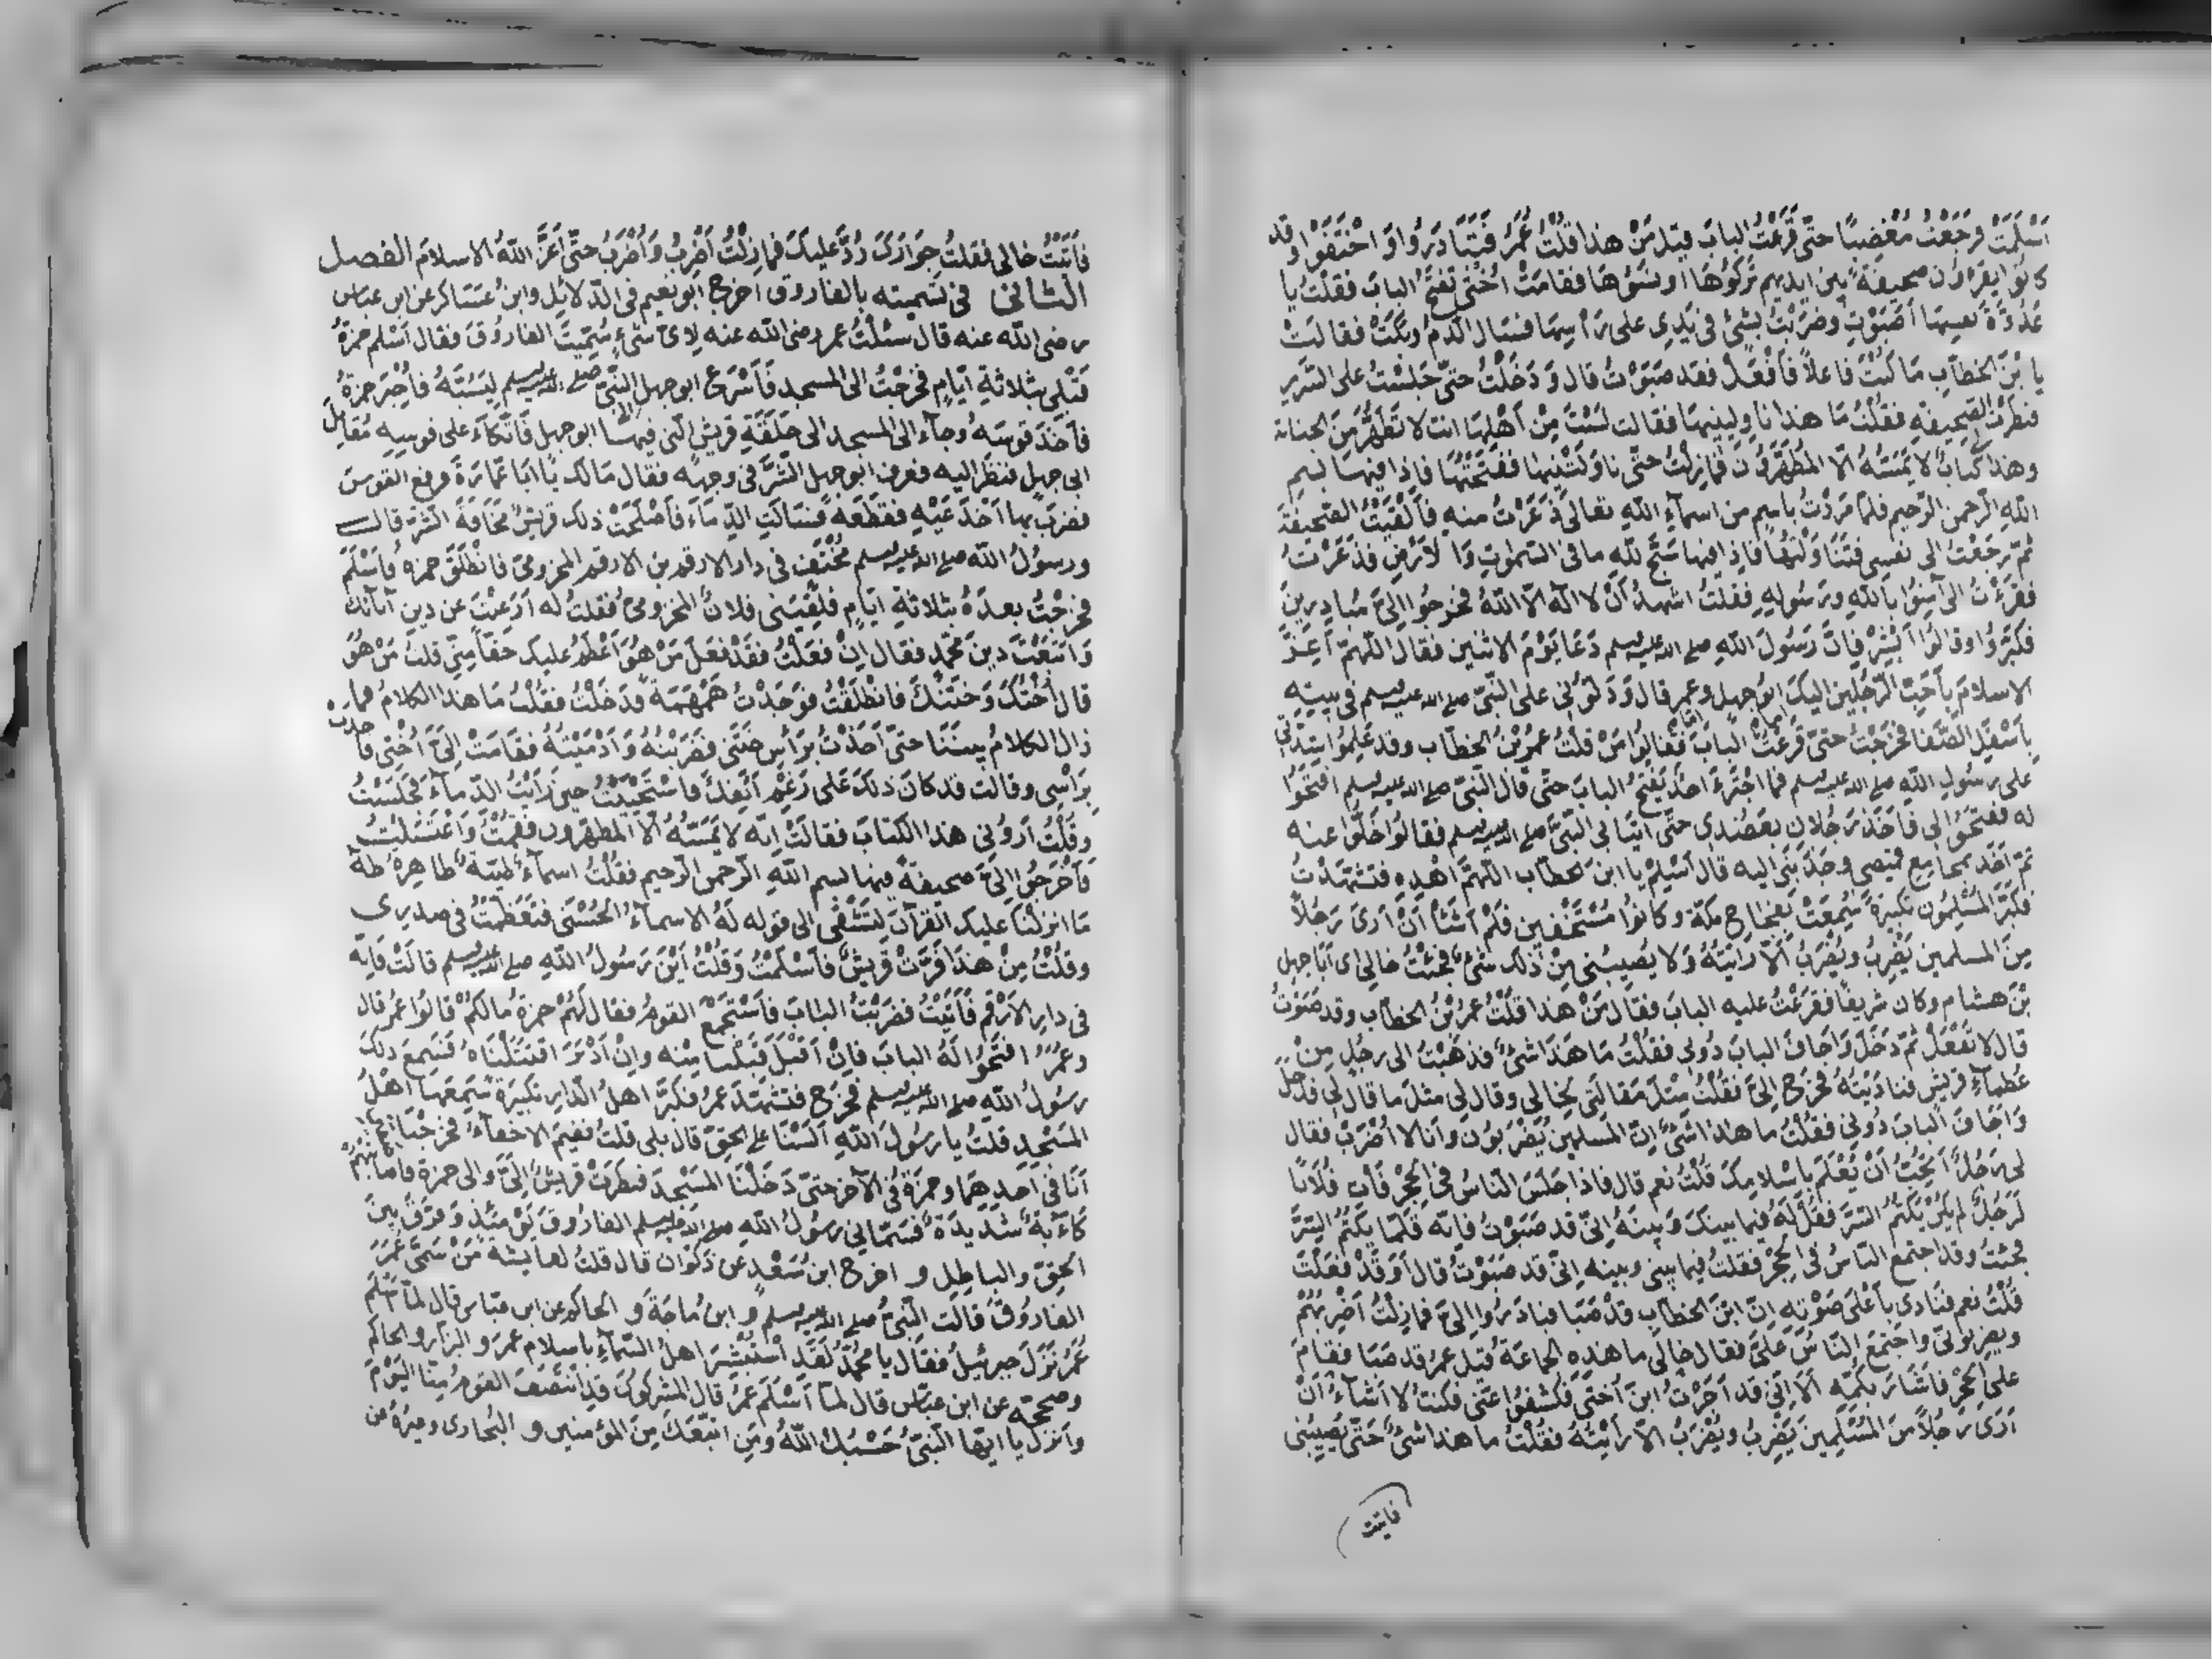 اَسْلَمَتْ فرجَعْتُ مُغْضِبًا حتّى قَرَعْتُ البابَ قيل مَنْ هذا قُلْتُ عُمَرُ فَتَبَادَرُوا وَ اخْتَفَوْا وقد
كانُوا يقرَؤن صحيفةً بين ايديهم تركوُهَا او نسَوُهَا فقامَتْ اُخْتى تفتحُ البابَ فقلْتُ يا
عَدُوَّةَ نفسِهَا اَصَبَوْتِ وضَرَبْتُ بشئ فى يَدِى على رَأسِهَا فسَال الدّمُ وبَكَتْ فقالَتْ
يا بْنَ الخطّابِ مَا كُنْتَ فاعلاً فَافْعَلْ فقد صَبَوْتُ قال وَدَخَلْتُ حتّى جَلسْتُ على السَّرير
فنظرتُ الصّحيفةِ فقُلتُ مَا هذا ناوِلينِيهَا فقالت لسْتَ مِنْ اَهْلِهَا انت لا تَطَهَّرُ مِنَ الجنابة
وهذا كتابٌ لا يَمَسُّهُ الاّ المُطَهَّرُونَ فمازِلْتُ حتّى ناوَلَتْنِيْهَا ففَتَحْتُهَا فاِذا فيهَا بسم
اللهِ الرّحمن الرّحيم فلمّا مَرَرْتُ باسمٍ من اسمآءِ اللهِ تعَالى ذُعَرْتُ منه فَاَلْقَيْتُ الصّحيفةَ
ثمّ رجَعْتُ الى نفسِى فتَنَاوَلتُهَا فاِذا فيها سَبَّحَ للهِ ما فى السّموٰتِ وَالاَرْضِ فذُعَرْتُ
فقرَءْتُ الى آمِنُوا باللهِ ورَسُولِهِ فقلتُ اشهدُ اَنْ لا اله الاّ اللهُ فخرجُوا اِلىَّ مُبَادِرينَ
فكَبَّرُوا وقالُوا اَبْشِرْ فاِنَّ رَسُولَ اللهِ صلى الله عليه وسلم دَعَا يَوْمَ الاثنين فقال اللّهمّ اَعِزَّ
الاسلامَ بأحَبِّ الرّجُلين اليكَ ابو جهل وعمر قال وَدَلّوُنى على النّبيّ صلى الله عليه وسلم فى بيتٍ
بأسْفلِ الصَّفا فخرَجْتُ حتّى قرَعْتُ البابَ فقالُوا مَنْ قلتُ عمرُ بْنُ الخطّاب وقد علِمُوا شِدّتى
على رسُولِ اللهِ صلى الله عليه وسلم فما اجْتَرَءَ احدٌ يَفتحُ البابَ حتّى قال النّبيّ صلى الله عليه وسلم افتحُوا
له ففتحُوا لى فاَخَذَ رَجُلانِ بعَضُدى حتّى اتيَا بى النّبيَّ صلى الله عليه وسلم فقالوُا خَلّوا عنه
ثمّ اَخَذ بمجَامِع قميصى وجَذبَنى اليه قال اَسْلِمْ يا ابنَ الخطّاب اللّهمّ اهْدِهِ فتشهّدْتُ
فكَبَّرَ المُسْلِمُون تكبيرَةً سُمِعَتْ بفِجَاجِ مكّة وكانوُا مُسْتَخفين فلَمْ اَشَأْ اَنْ اَرَىٰ رَجُلاً
مِنَ المسلمين يَضْرِبُ ويُضْرَبُ اَلاَّ رَأيْتُهُ وَلا يُصيبُنى مِنْ ذلك شئٌ فجئْتُ خالى اى اَبَا جهل
بْنَ هشام وكان شريفًا فقرَعْتُ عليه البابَ فقال مَنْ هذا قلْتُ عمرُ بْنُ الخطّاب وقد صَبَوْتُ
قال لا تَفْعَلْ ثمّ دَخَلَ وَاَجَافَ البابَ دُونى فقلْتُ مَا هَذا شئٌ فذهَبْتُ الى رجُلٍ مِنْ
عُظمآءِ قريش فنادَيْتُهُ فخرَجَ اِلىَّ فقُلْتُ مِثْلَ مَقَالَتى لخالى وقال لى مثلَ ما قال لى فدخلَ
وَاَجَافَ البابَ دُونى فقلْتُ ما هذا شئٌ اِنّ المسلمين يُضْرَبوُن وأنا لا اُضْرَبُ فقال
لى رَجُلٌ اَتُحِبُّ اَنْ يُعْلَمَ بِاِسْلامِكَ قُلْتُ نعم قال فاذا جَلسَ النّاسُ فى الحِجْرِ فَأتِ فُلانًا
لرَجُلٍ لم يكُنْ يَكتُمُ السّرَّ فقُلْ لهُ فيما بينكَ وَبينهُ اِنّى قد صَبَوْتُ فاِنّه قَلّمَا يكتُمُ السِّرَّ
فجئتُ وقد اجتمع النّاسُ فى الحِجْر فقلتُ فيما بينى وبينه اِنّى قد صَبَوْتُ قال اَوَقَدْ فعَلْتَ
قُلْتُ نعم فنَادى بأعْلىَ صَوْتِهِ اِنّ ابْنَ الخطّابِ قدْ صَبَا فبَادَرُوا اِلىَّ فمازِلْتُ اَضْرِبُهُمْ
ويضربُونى واجْتمَعَ النّاسُ عَلىَّ فقال خالى ما هذه الجماعَةُ قيل عمرُ قد صَبَا فقامَ
على الحِجْرِ فاَشَارَ بكُمِّه اَلا اِنّى قد اَجَرْتُ ابنَ اُختى فكشفُوا عنّى فكنتُ لا اَشآءُ اَنْ
اَرَى رَجُلاً مِنَ المُسْلِمينَ يَضْرِبُ ويُضْرَبُ الاّ رَأيْتُهُ فقُلْتُ ما هذا شئٌ حَتّى يُصِيبَنى
فاتيت
فأتَيْتُ خالى فقلتُ جِوَارُكَ رُدَّ عَليكَ فمازِلْتُ اَضْرِبُ وَاُضْرَبُ حتّى اَعَزَّ اللهُ الاسلامَ الفصل
الثانى فى تسميته بالفاروق اخرج ابو نعيم فى الدّلائل وابنُ عَسَاكر عن ابن عبّاس
رضى الله عنه قال سَئلْتُ عمر رضى الله عنه لِاَىّ شئٍ سُمِّيْتَ الفاروُقَ فقال اَسْلم حمزةُ
قَبْلى بثلاثةِ ايّامٍ فخرَجْتُ الى المسجد فَأسْرَعَ ابو جهل النَّبىَّ صلى الله عليه وسلم لِيَسُبَّهُ فأُخْبِرَ حمزةُ
فَأخَذَ قوسَهُ وجآء الى المسجد الى حَلقَةِ قريش الّتى فيها ابو جهل فَاتّكَآءَ على قوسِهِ مُقَابِلَ
ابى جهلٍ فنظرَ اليه فعرف ابو جهل الشّرَّ فى وجههِ فقال مَا لك يَا ابَا عُمَارَةَ فرفع القوسَ
فضرَبَ بها اَخْدَعَيْهِ فقَطعَهُ فسَالتِ الدّمَآءُ فَأصْلَحَتْ ذلك قريشٌ مخَافةَ الشّرّ قال
ورسوُلُ الله صلى الله عليه وسلم مُخْتَفٍ فى دار الارقم بن الارقم المخزومىّ فانْطَلَقَ حمزة فأسْلَمَ
فخرَجْتُ بعدَهُ بثلاثةِ ايّامٍ فلَقِيَنى فلانٌ المخزومىُّ فقلتُ له اَرَغِبْتَ عن دينِ آبآئكَ
وَاتّبَعْتَ دينَ محمّدٍ فقال اِنْ فعَلْتُ فقَدْ فعَلَ مَنْ هُوَ اَعْظَمُ عليك حَقّاً مِنّى قلتُ مَنْ هُوَ
قال اُخْتُكَ وَخَتَنُكَ فانْطلَقْتُ فوَجَدْتُ هَمْهَمَةً فدَخَلْتُ فقلْتُ مَا هذا الكلامُ فما
زال الكلامُ بيننَا حتىّ اَخَذْتُ برَأسِ خَتَنى فضَرَبْتُهُ وَاَدْمَيْتُهُ فقامَتْ اِلىَّ اُخْتى فاَخذت
بِرَأسِى وقالت قد كان ذلكَ عَلى رَغْمِ اَنْفِكَ فاسْتَحْيَيْتُ حينَ رَاَيْتُ الدّمآءَ فجَلسْتُ
وقُلْتُ اَرُوْنى هذا الكتابَ فقالتْ اِنّه لا يَمَسُّهُ اِلاّ المطهّرون فقُمْتُ وَاغْتَسَلْتُ
فَأخْرَجوُا اِلىَّ صحيفةً فيها بسم اللهِ الرّحمن الرّحيم فقُلْتُ اسمآءٌ طيّبةٌ طاهرةٌ طه
مَا انزلْنَا عليك القرآنَ لِتَشْقٰى الى قوله لَهُ الاسمآءُ الحُسْنٰى فتَعَظّمَتْ فى صدرى
وقُلْتُ مِنْ هذا فرَّتْ قريشٌ فأسْلَمْتُ وَقُلْتُ اَيْنَ رَسُولُ اللهِ صلى الله عليه وسلم قالتْ فاِنّه
فى دارِ الاَرْقمِ فَأتَيْتُ فضَرَبْتُ البابَ فَاسْتَجْمَعَ القومُ فقال لَهُمْ حمزةُ مالكُمْ قالوُا عمرُ قال
وعمرُ افتَحُوا لهُ البابَ فاِنْ اَقْبَلَ قَبلْنا مِنْه وَاِنْ اَدْبَرَ اقتَتَلْنَاهُ فسَمِعَ ذلكَ
رسُولُ اللهِ صلى الله عليه وسلم فخرَجَ فتشَهَّدَ عمرُ فكبّرَ اهلُ الدّارِ تكبيرَةً سَمِعَهَا اَهْلُ
المَسْجِدِ قلتُ يا رسُولَ اللهِ اَلسْنَا على الحقّ قال بلى قلتُ ففيمَ الاخفآءُ فخرجْنَا
اَنَا فى اَحدِهِمَا وحمزَةُ فى الآخر حتىّ دَخَلْنَا المَسْجدَ فنظرَتْ قريشٌ اِلىَّ والى حمزة فأصابَتْهُمْ
كَآءبةٌ شديدَةٌ فسَمّانى رسُولُ اللهِ صلى الله عليه وسلم الفاروُقَ يَوْمَئِذٍ وَفرّقَ بينَ
الحقّ والباطِل و اخرج ابنُ سَعْدٍ عن ذكوَان قال قلتُ لعايشةَ مَنْ سَمّى عُمَرَ
الفاروُقَ قالت النّبىُّ صلى الله عليه وسلم و ابنُ مَاجَةَ و الحاكم عن ابن عبّاس قال لمّا اَسْلَمَ
عُمَرُ نَزَلَ جبرئيلُ فقال يا محمّدُ لقد اسْتبْشرَ اهلُ السّمآءِ باسلام عمرَ و البزّار و الحاكم
وصحّحَه عن ابن عبّاس قال لمّا اَسْلَمَ عمرُ قال المشركوُنَ قدِ انْتَصَفَ القومُ مِنّا اليَوْمَ
وأنزلَ يا ايّها النّبىُّ حَسْبُكَ اللهُ ومَنِ اتّبَعَكَ مِنَ المؤمنين و البُخارى وغيرُهُ عن